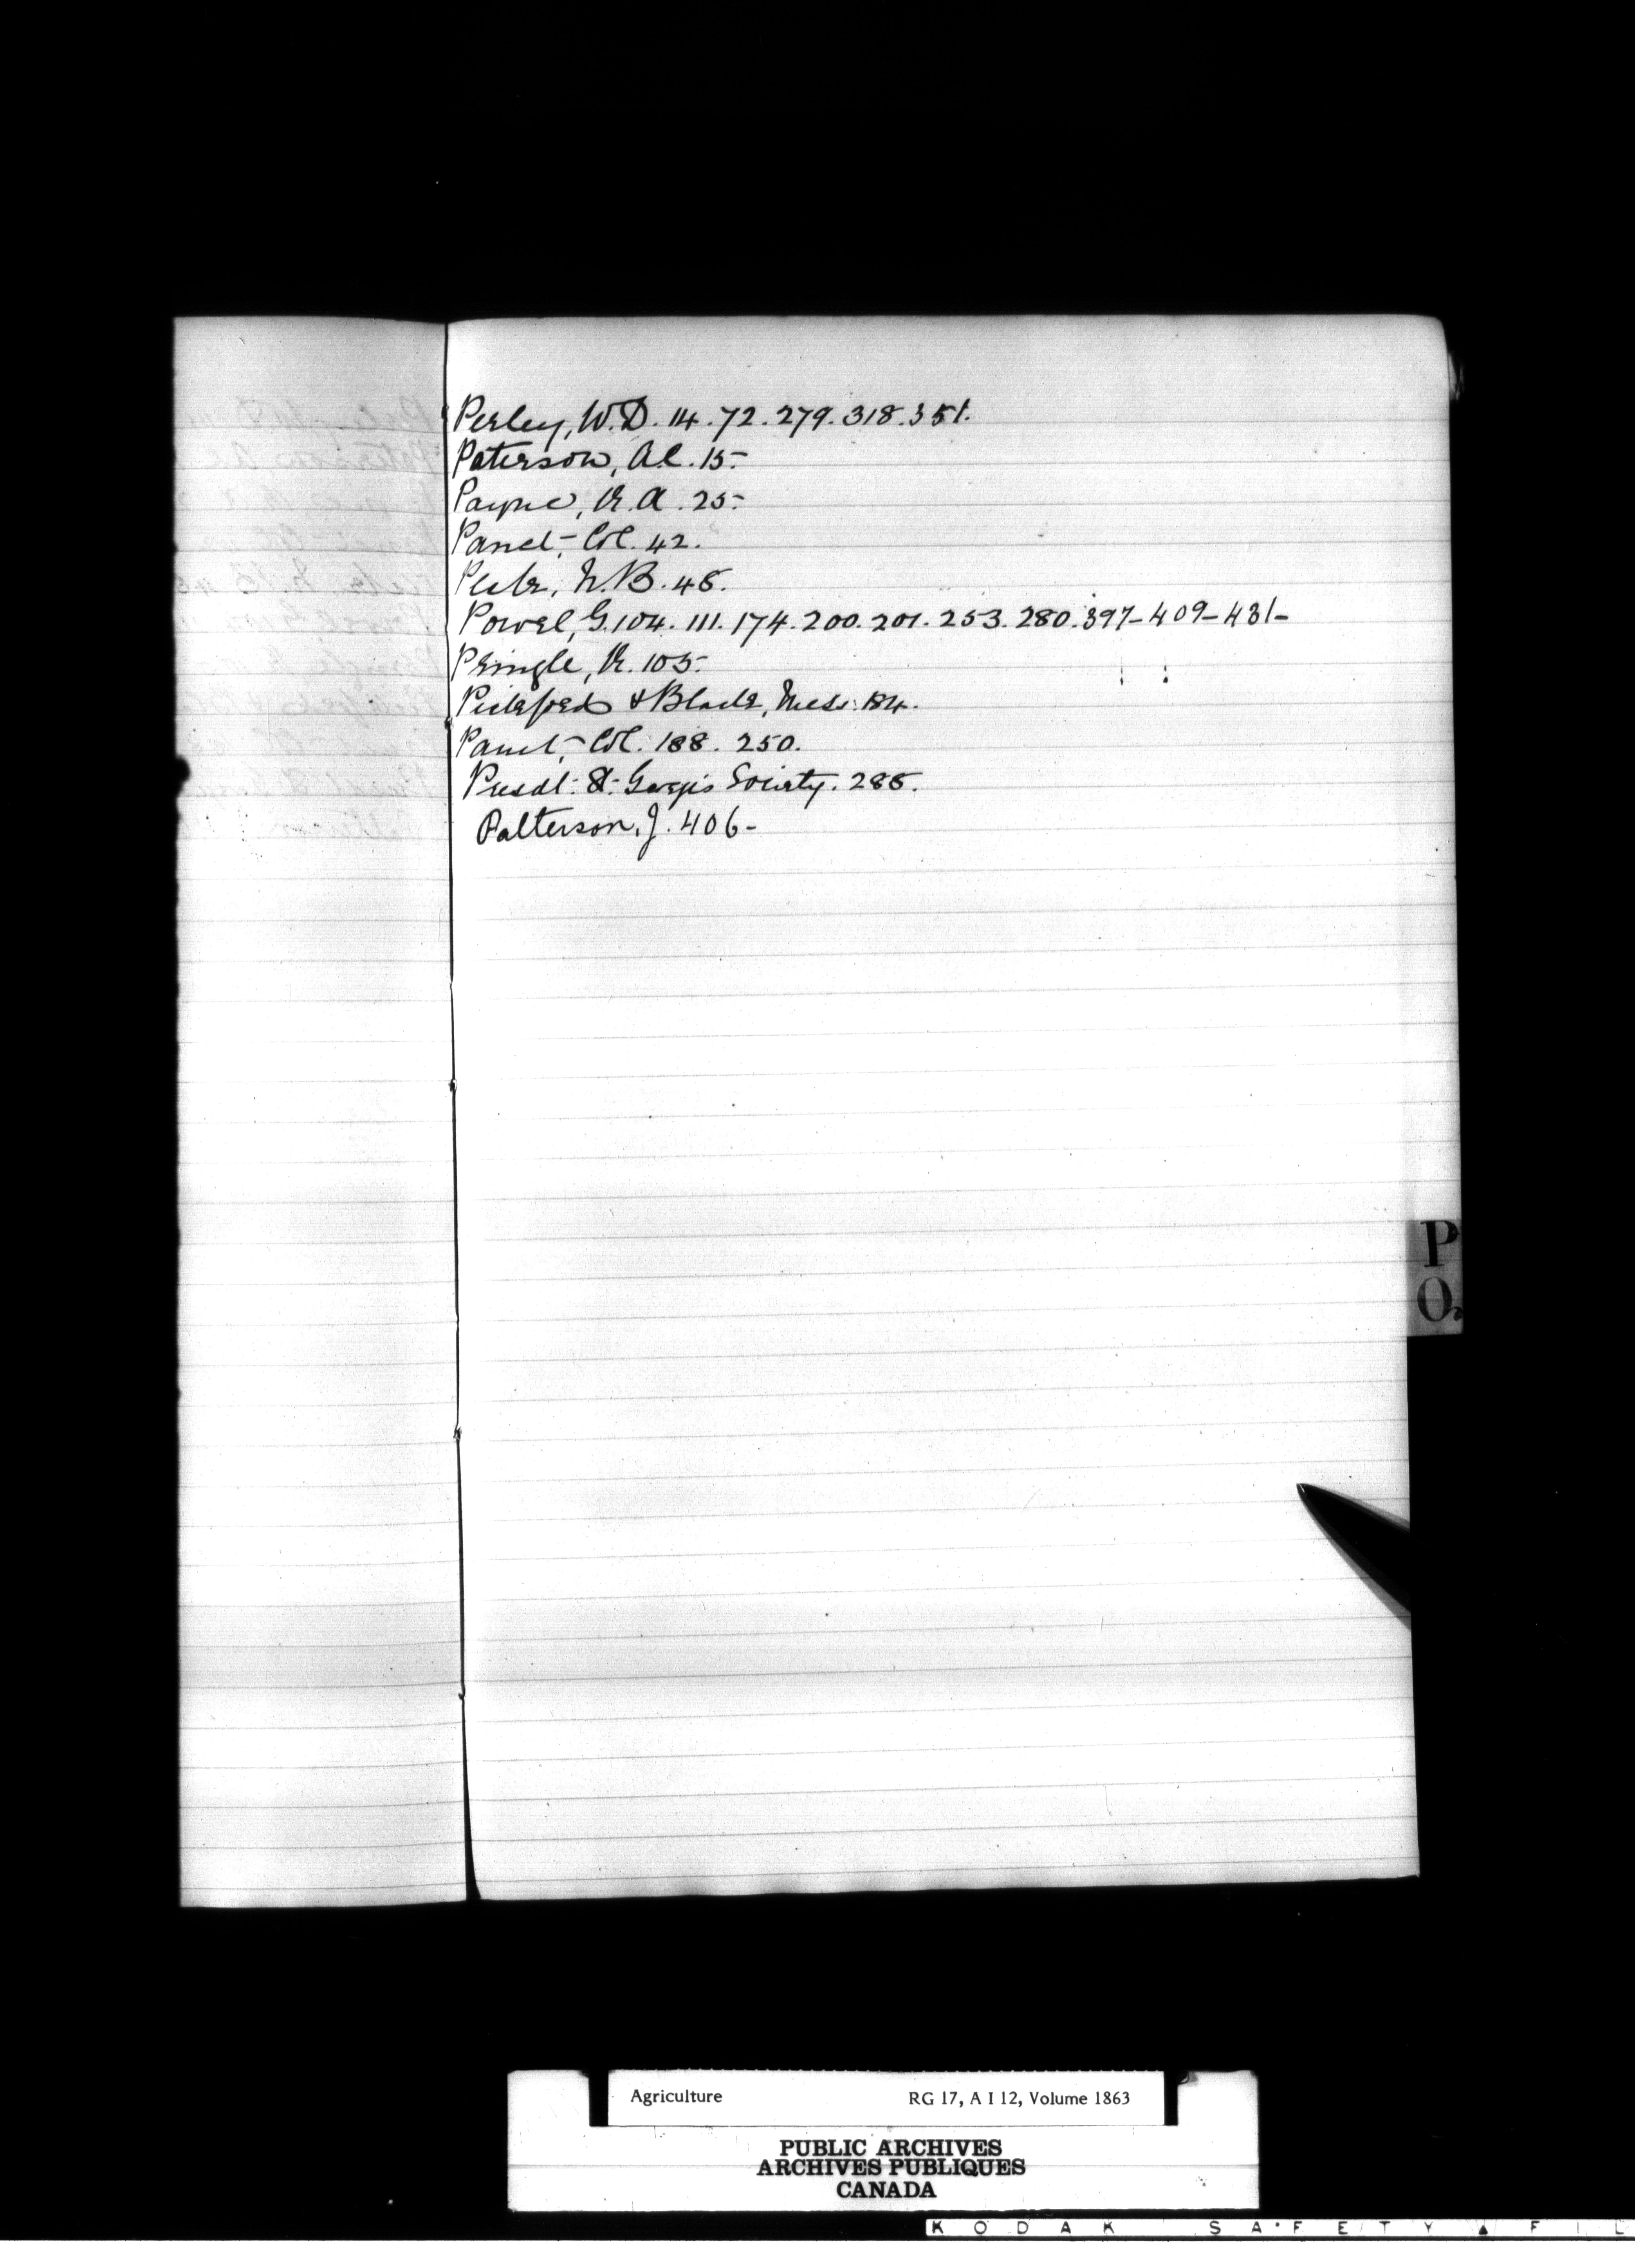 Perley, W.D. 14. 72. 279. 318. 351.
Paterson, A.C. 15.
Payne, R.A. 25.
Panet, Col. 42.
N.B. 48.
Powel, G. 104. 111. 174. 200. 201. 253. 280. 397- 409- 431-
Pringle, R. 105.
Pickford & Black, Mess. 184.
Panet, Col. 188. 250.
Presdt. St. George's Society. 288.
Patterson, J. 406-
P
Q
Agriculture RG 17, A I 12, Volume 1863
PUBLIC ARCHIVES
ARCHIVES PUBLIQUES
CANADA
KODAK SAFETY FIL